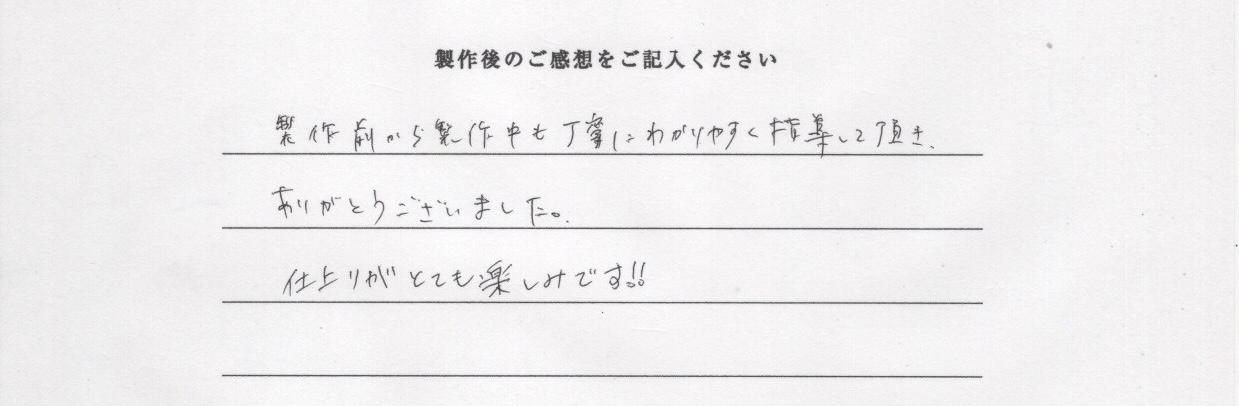 製作後のご感想をご記入ください
製作前から製作中も丁寧にわかりやすく指導して頂き、
ありがとうございました。
仕上りがとても楽しみです!!